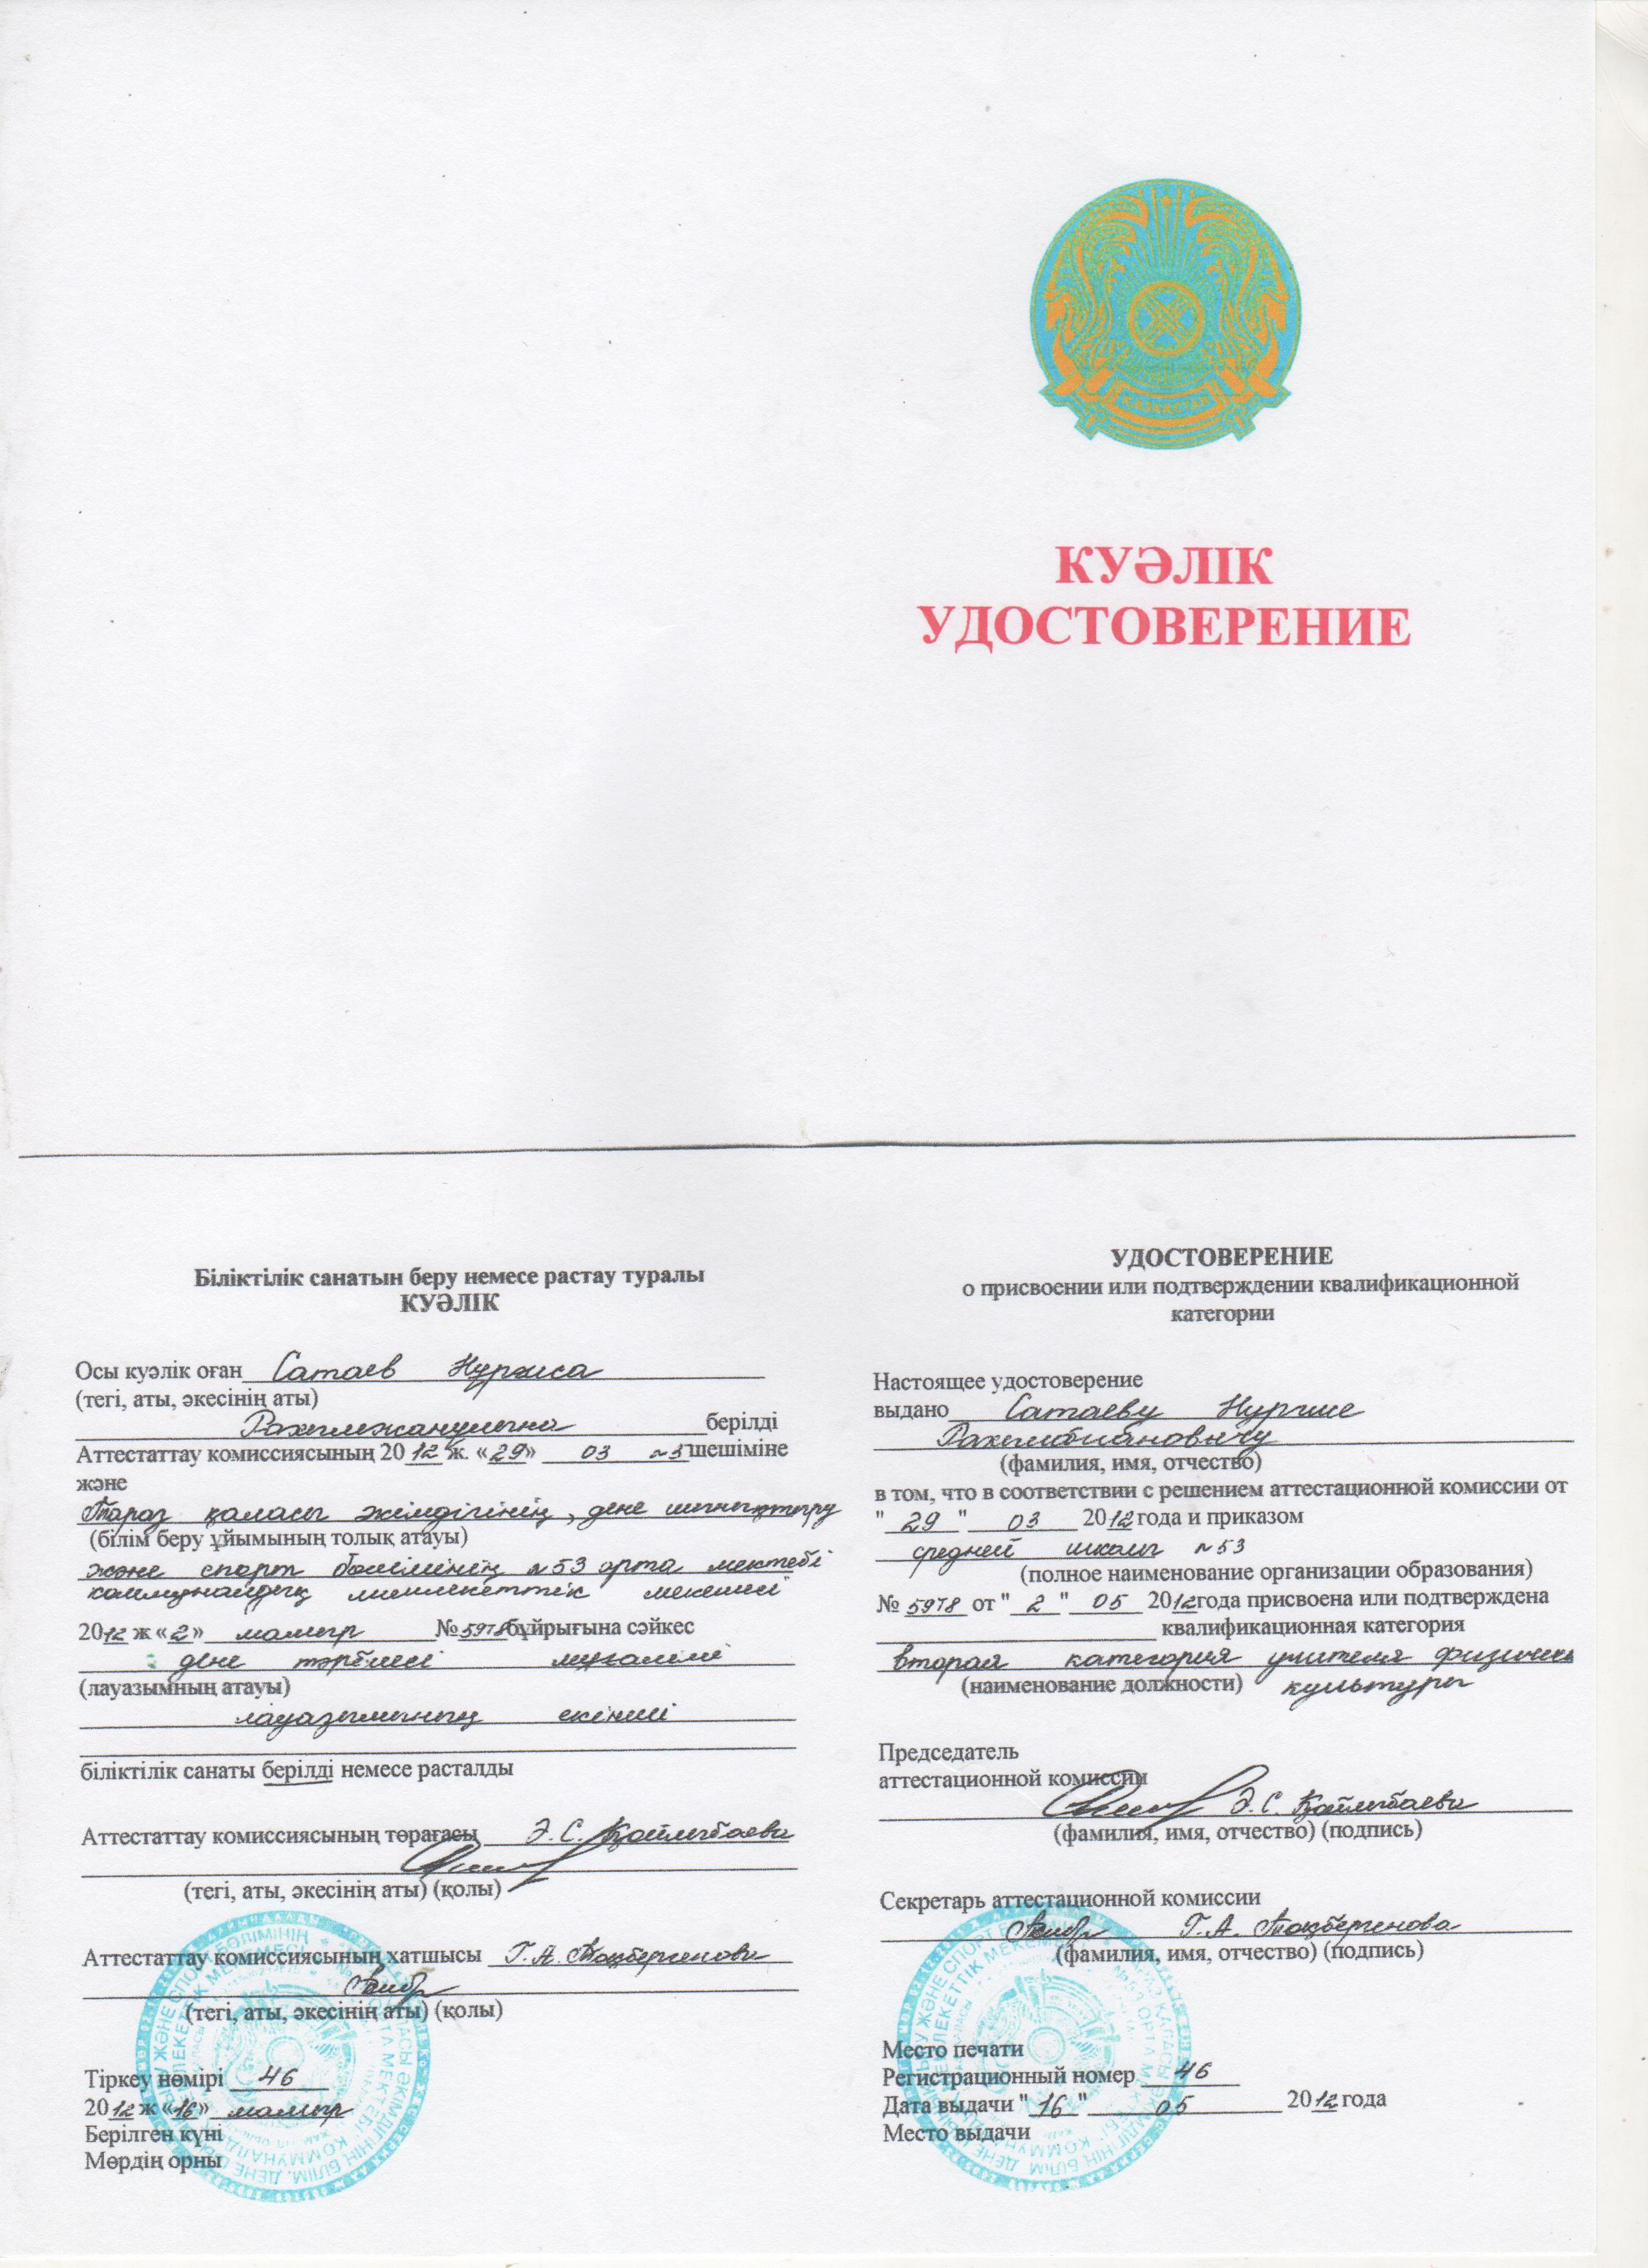 ҚАЗАҚСТАН
КУӘЛІК
УДОСТОВЕРЕНИЕ
Біліктілік санатын беру немесе растау туралы
КУӘЛІК
Осы куәлік оған Сатаев Нұрғиса
(тегі, аты, әкесінің аты)
берілді
Аттестаттау комиссиясының 2012 ж. «29» 03 №5 шешіміне
және
Тараз қаласы әкімдігінің, дене шынықтыру
(білім беру ұйымының толық атауы)
және спорт бөлімінің №53 орта мектебі
коммуналдық мемлекеттік мекемесі
2012 ж «2» мамыр №597б бұйрығына сәйкес
дене тәрбиесі мұғалімі
(лауазымның атауы)
лауазымының екінші
біліктілік санаты берілді немесе расталды
Аттестаттау комиссиясының төрағасы Ә.С. Қойлыбаева
(тегі, аты, әкесінің аты) (қолы)
Аттестаттау комиссиясының хатшысы Г.А. Тоқбергенова
(тегі, аты, әкесінің аты) (қолы)
Тіркеу нөмірі 46
2012 ж «16» мамыр
Берілген күні
Мөрдің орны
УДОСТОВЕРЕНИЕ
о присвоении или подтверждении квалификационной
категории
Настоящее удостоверение
выдано Сатаеву Нургисе
(фамилия, имя, отчество)
в том, что в соответствии с решением аттестационной комиссии от
"29" 03 2012 года и приказом
средней школы №53
(полное наименование организации образования)
№ 597б от "2" 05 2012 года присвоена или подтверждена
квалификационная категория
вторая категория учителя физическ
(наименование должности) культуры
Председатель
аттестационной комиссии
Ә.С. Қойлыбаева
(фамилия, имя, отчество) (подпись)
Секретарь аттестационной комиссии
Г.А. Тоқбергенова
(фамилия, имя, отчество) (подпись)
Место печати
Регистрационный номер 46
Дата выдачи "16" 05 2012 года
Место выдачи